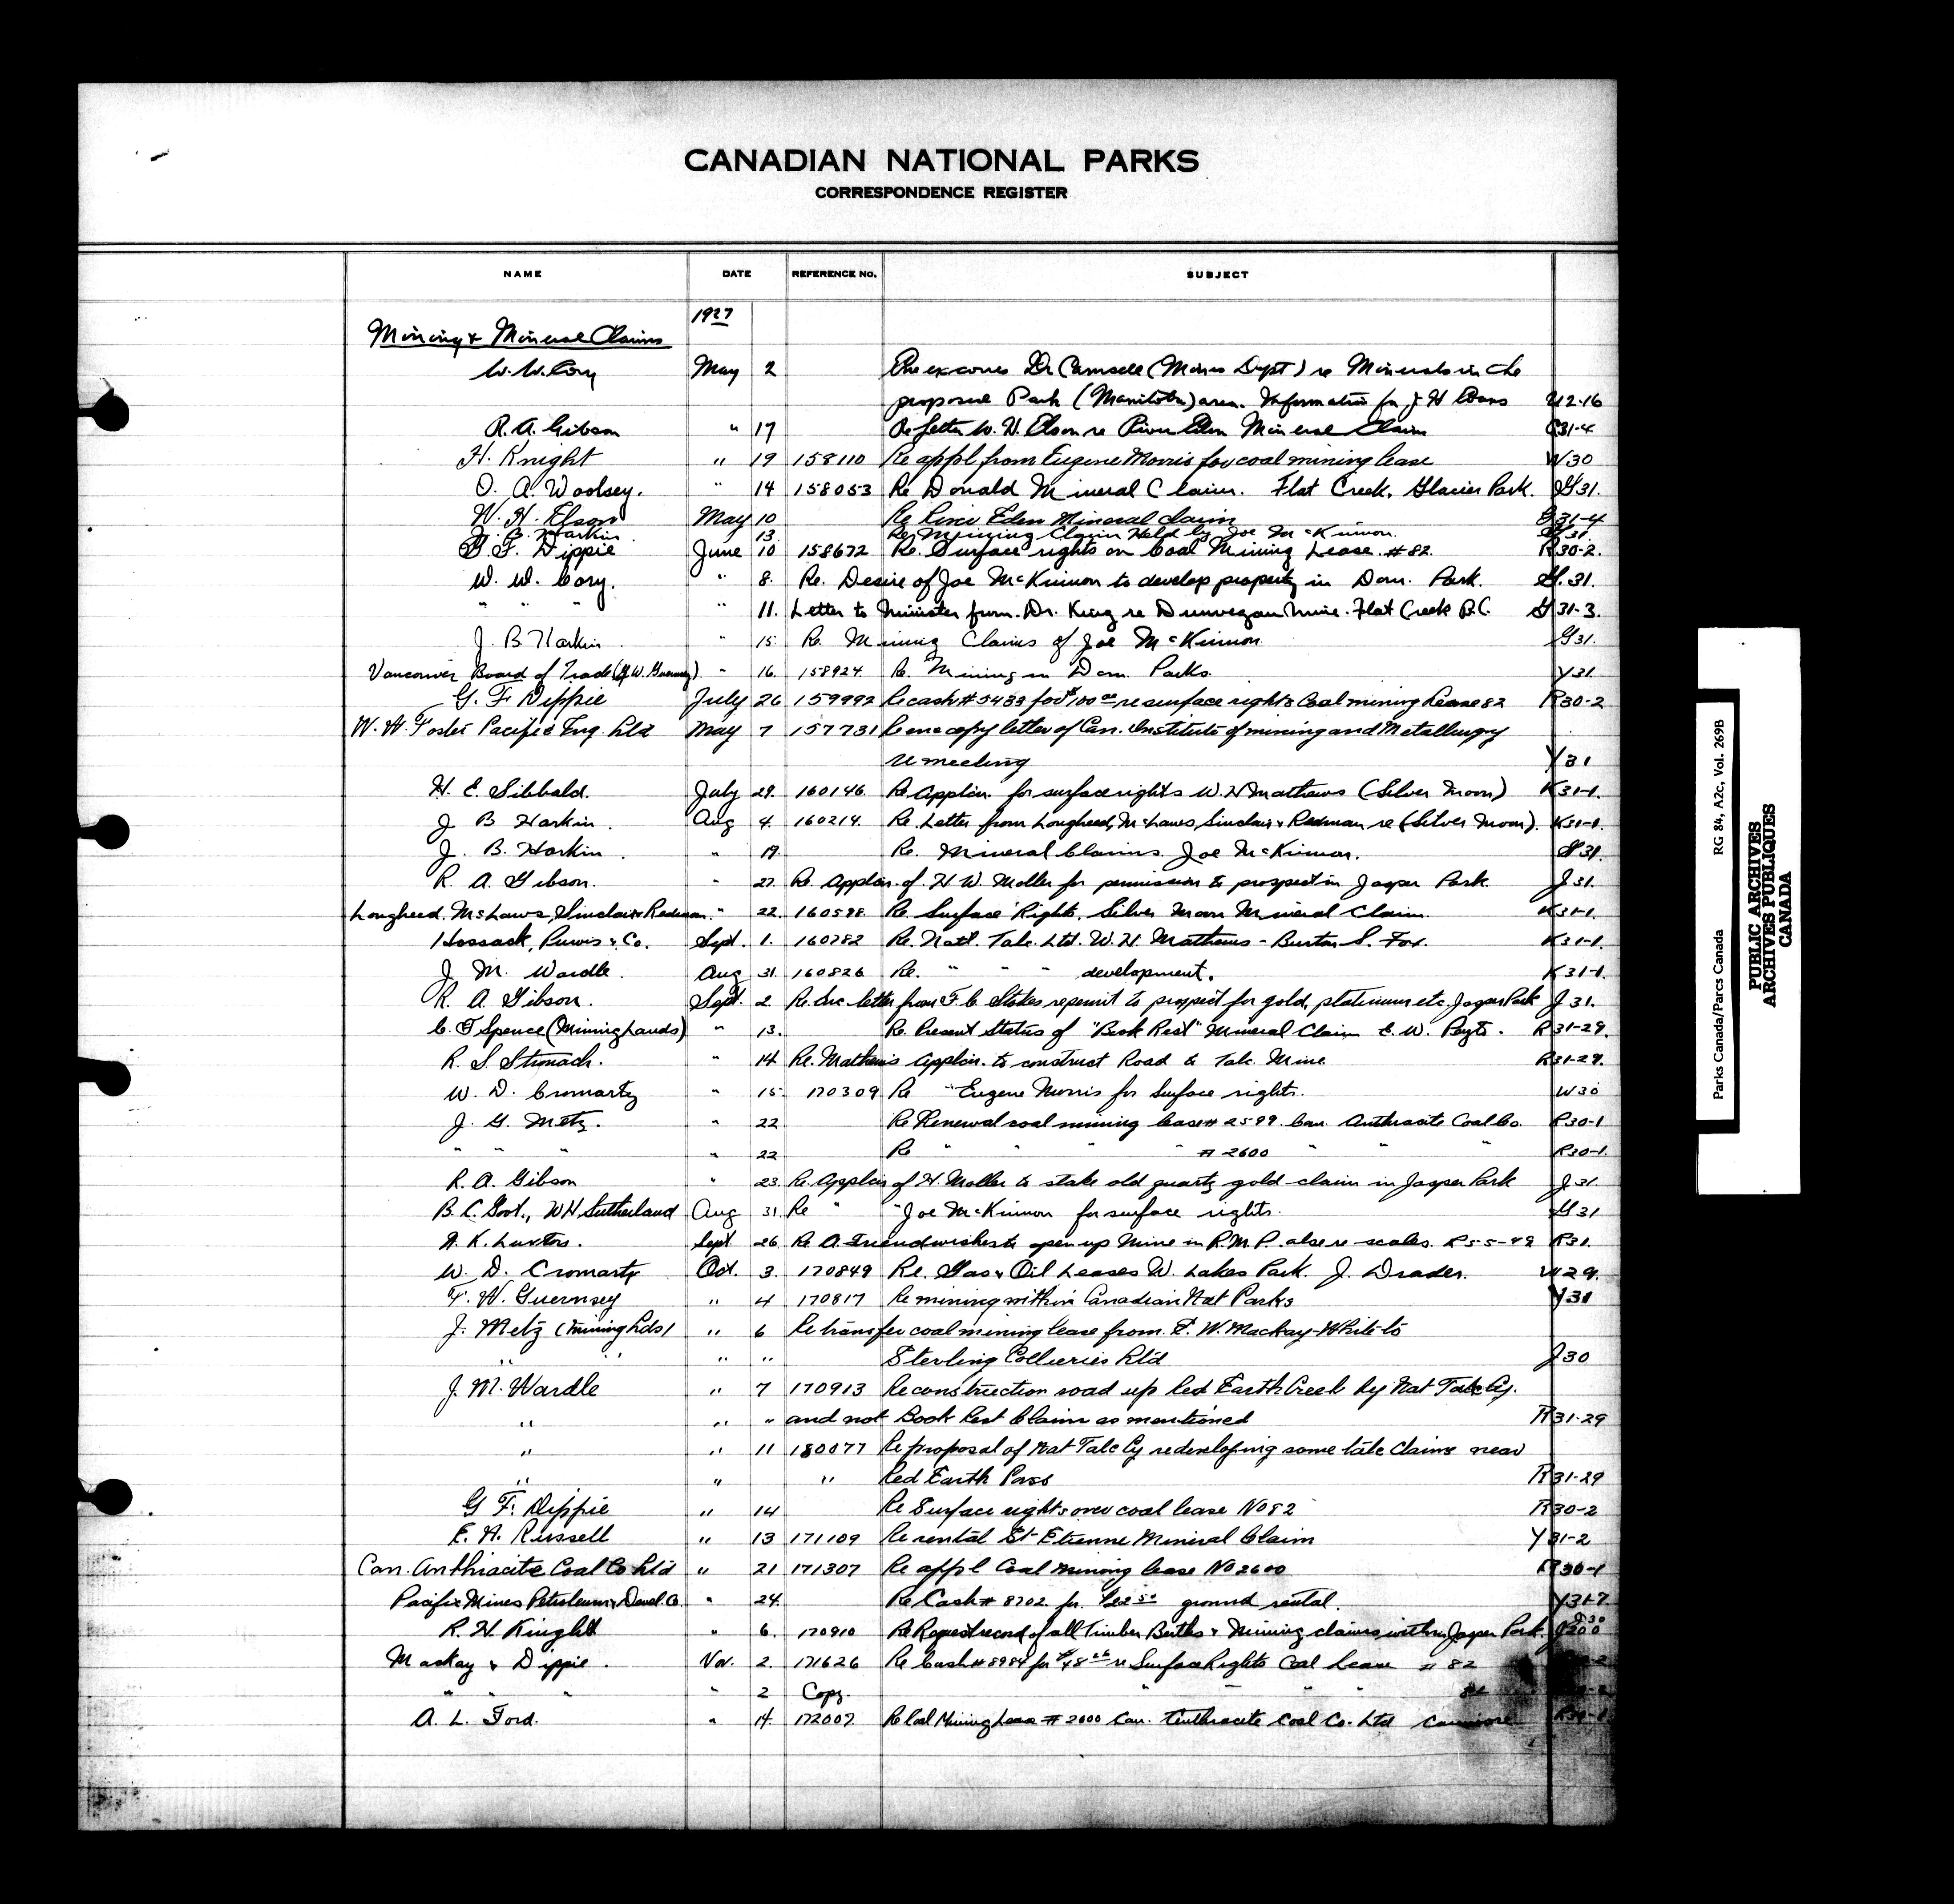 CANADIAN NATIONAL PARKS
CORRESPONDENCE REGISTER
NAME DATE REFERENCE No. SUBJECT
1927
Mining & Mineral Claims
W. W. Cory May 2 Dr Camsell (Mines Dept) re Minerals in the
proposed Park (Manitoba) area. Information for J H Evans U2-16
R. A. Gibson " 17 Re letter W. H. Elson re River Eden Mineral Claim G31-4
H. Knight " 19 158110 Re appl from Eugene Morris for coal mining lease W30
O. A. Woolsey. " 14 158053 Re Donald Mineral Claim. Flat Creek, Glacier Park. G31.
W. H. Elson May 10 Re River Eden Mineral claim G31-4
J. B. Harkin. 13. Re Mining Claim Held by Joe McKinnon. G31.
G. F. Dippie June 10 158672 Re. Surface rights on Coal Mining Lease. #82. R30-2.
W. W. Cory. " 8. Re. Desire of Joe McKinnon to develop property in Dom. Park. G.31.
" " " " 11. Letter to Minister from Dr. King re Dunvegan Mine. Flat Creek B.C. G31-3.
J. B. Harkin " 15. Re Mining Claims of Joe McKinnon. G31.
Vancouver Board of Trade (F. W. Guernsey) " 16. 158924. Re. Mining in Dom. Parks. Y31
G. F Dippie July 26 159992 Re cash # 5483 for $100 00 re surface rights Coal mining Lease 82 R30-2
W. W. Foster Pacific Eng. Ltd May 7 157731 Re enc copy letter of Can. Institute of mining and Metallurgy
re meeting Y31
H. E. Sibbald. July 29. 160146. Re Applcn. for surface rights W. H Mathews (Silver Moon) K31-1.
J B Harkin. Aug 4. 160214. Re. Letter from Lougheed, McLaws, Sinclair & Redman re (Silver Moon). K31-1.
J. B. Harkin. " 19. Re. Mineral Claims. Joe McKinnon. G31.
R. A. Gibson. " 27. Re Applcn. of H W. Moller for permission to prospect in Jasper Park. J31.
Lougheed. McLaws, Sinclair & Redman. " 22. 160598. Re Surface Rights, Silver Moon Mineral Claim. K31-1.
Hossack, Purvis & Co. Sept. 1. 160782 Re. Natl. Talc Ltd. W. H. Mathews - Burton S. Fox. K31-1.
J. M. Wardle. Aug 31. 160826 Re. " " " development. K31-1.
R. A. Gibson. Sept. 2. Re Enc letter from F. C Stokes re permit to prospect for gold, platinum etc. Jasper Park J31.
C. F Spence (Mining Lands) " 13. Re. Present Status of "Book Rest" Mineral Claim E. W. R31-29.
R. S. Stronach. " 14 Re. Mathews Applcn. to construct Road to Talc Mine R31-29.
W. D. Cromarty " 15. 170309 Re " Eugene Morris for Surface rights. W30
J. G. Metz. " 22 Re Renewal coal mining lease # 2599. Can. Anthracite Coal Co. R30-1
" " " " 22 Re " " " # 2600 " " " R30-1.
R. A. Gibson " 23. Re. Applcn of H. Moller to stake old quartz gold claim in Jasper Park J31.
B. C. Govt., W H Sutherland Aug 31. Re " " Joe McKinnon for surface rights. G31
N. K. Luxton. Sept. 26 Re A. Friend wishes to open up Mine in R. M. P. also re scales. R5-5-49 R31.
W. D. Cromarty Oct. 3. 170849 Re. Gas & Oil Leases W. Lakes Park. J. Drader. W29.
F. W. Guernsey " 4 170817 Re mining within Canadian Nat Parks Y31
J. Metz (Mining Lds) " 6 Re transfer coal mining lease from E. W. Mackay-White to
" " " " Sterling Collieries Ltd J30
J. M. Wardle " 7 170913 Re construction road up Red Earth Creek by Nat Talc Cy.
" " " and not Book Rest Claim as mentioned R31-29
" " 11 180077 Re proposal of Nat Talc Cy re developing some talc claims near
" " " Red Earth Pass R31-29
G F. Dippie " 14 Re Surface rights over coal lease No 82 R30-2
E. A. Russell " 13 171109 Re rental St Etienne Mineral Claim Y31-2
Can. Anthracite Coal Co Ltd " 21 171307 Re appl Coal Mining lease No 2600 R30-1
Pacific Mines Petroleum & Devel. Co. " 24. Re Cash # 8702 for $22 50 ground rental. Y31-7
R. H. Knight " 6. 170910 Re Request record of all Timber Berths & Mining claims within Jasper Park. J30
J200
Mackay & Dippie. Nov. 2. 171626 Re Cash # 8984 for re Surface Rights Coal Lease # 82
" " " " 2 Copy. " " " " 82
A. L. Ford. " 14. 172007. Re Coal Mining Lease # 2600 Can. Anthracite Coal Co. Ltd Canmore R30-1
Parks Canada/Parcs Canada RG 84, A2c, Vol. 269B
PUBLIC ARCHIVES
ARCHIVES PUBLIQUES
CANADA